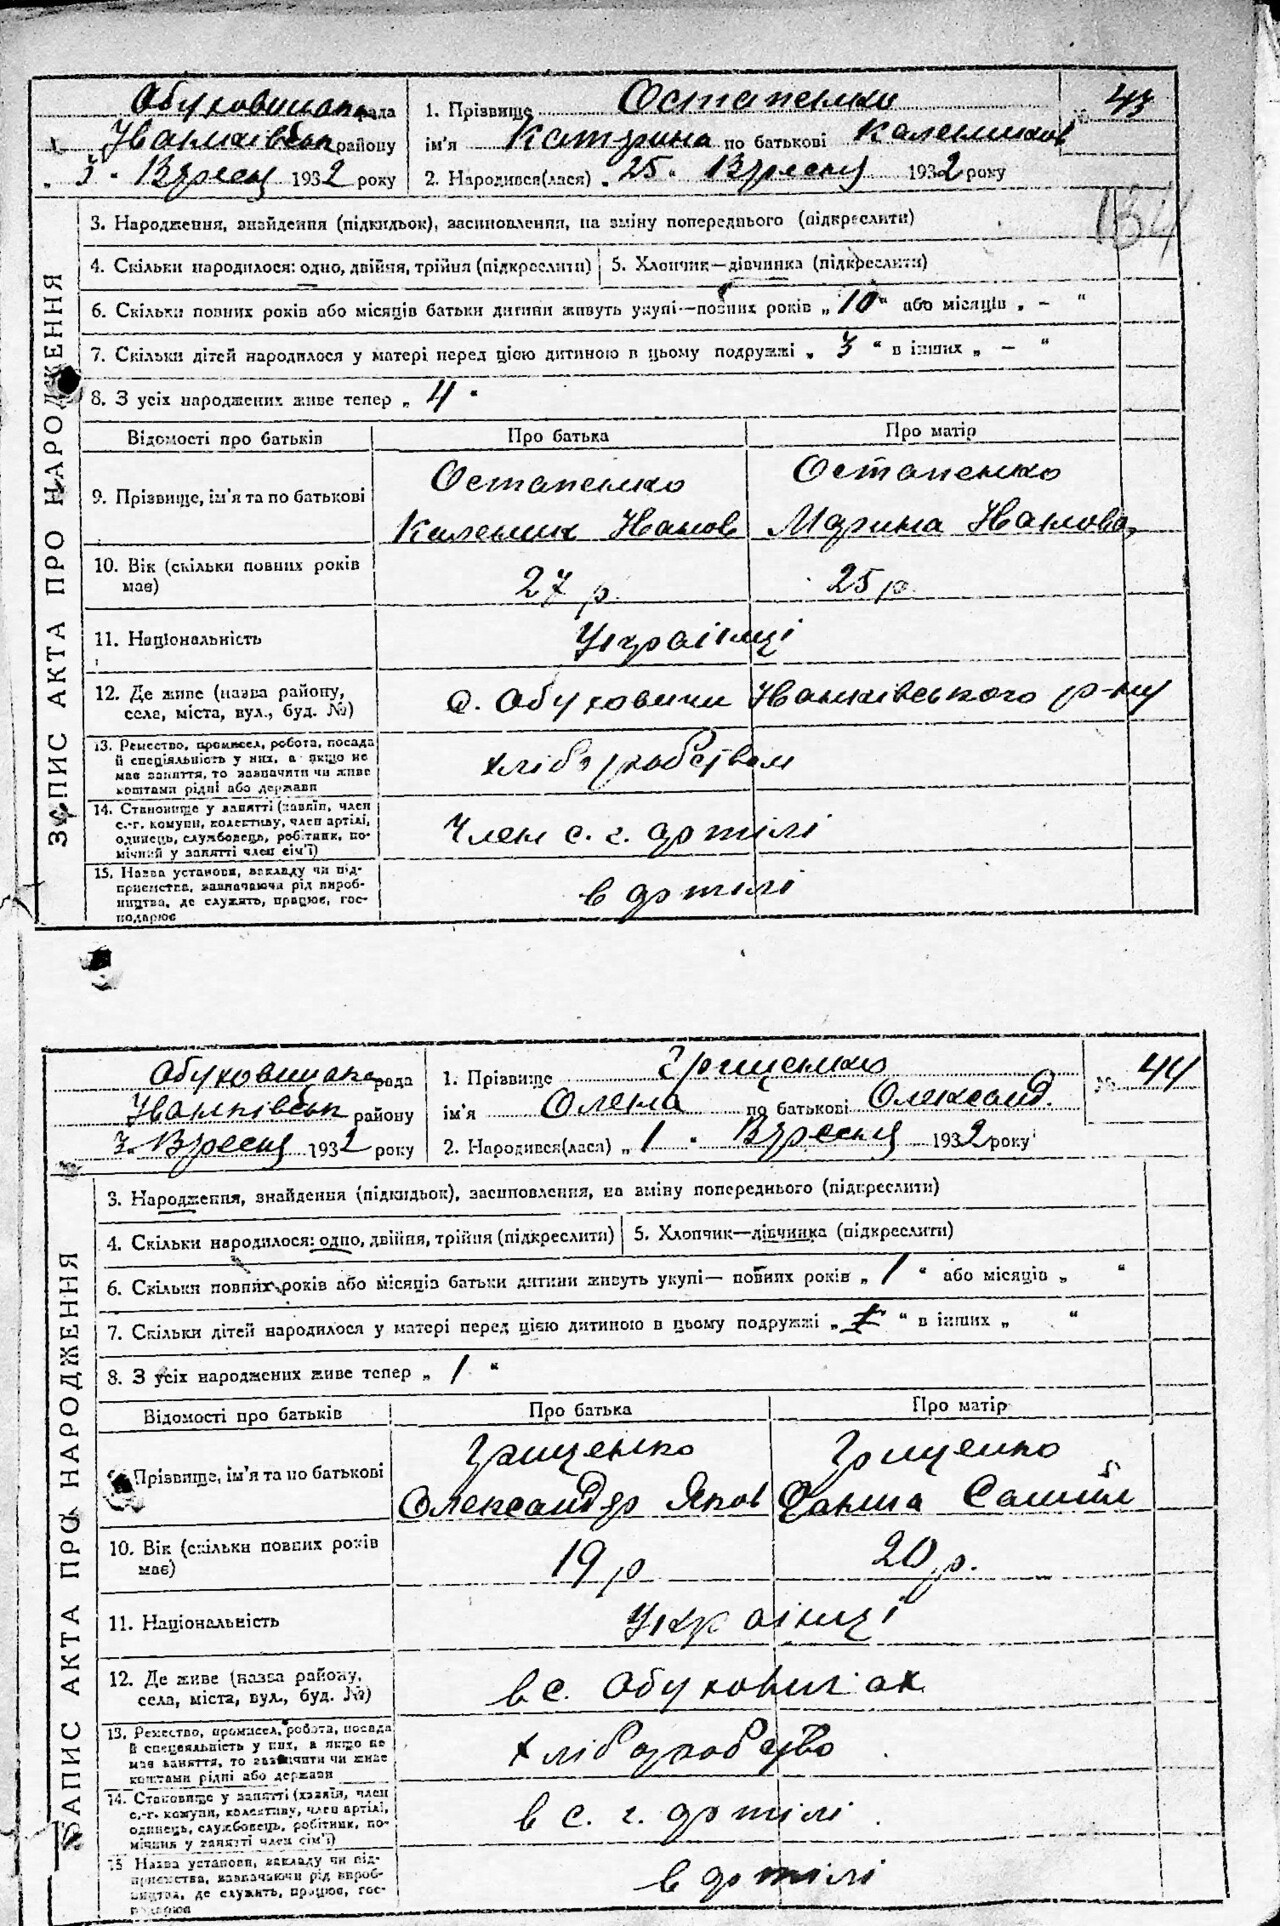 Обуховицька рада
Іванківськ району
„ 3 „ Вересня 1932 року
1. Прізвище Остапенко
ім'я Катерина по батькові Калеників
2. Народився(лася) „ 25 „ Вересня 1932 року
№ 43
134
ЗАПИС АКТА ПРО НАРОДЖЕННЯ
3. Народження, знайдення (підкидьок), засиновлення, на зміну попереднього (підкреслити)
4. Скільки народилося: одно, двійня, трійня (підкреслити) 5. Хлопчик—дівчинка (підкреслити)
6. Скільки повних років або місяців батьки дитини живуть укупі—повних років „ 10 “ або місяців „ – “
7. Скільки дітей народилося у матері перед цією дитиною в цьому подружжі „ 3 “ в інших „ – “
8. З усіх народжених живе тепер „ 4 “
Відомості про батьків Про батька Про матір
9. Прізвище, ім'я та по батькові
Остапенко Остапенко
Каленик Іванов Марина Іванова
10. Вік (скільки повних років
має)
27 р. 25 р.
11. Національність Українці
12. Де живе (назва району,
села, міста, вул., буд. №)
с. Обуховичи Іванківського р-ну
13. Ремество, промисел, робота, посада
й спеціяльність у них, а якщо не
має заняття, то зазначити чи живе
коштами рідні або держави
хліборобством
14. Становище у занятті (хазяїн, член
с.-г. комуни, колективу, член артілі,
одинець, службовець, робітник, по-
мічний у занятті член сім'ї)
Член с. г. артілі
15. Назва установи, закладу чи під-
приємства, зазначаючи рід вироб-
ництва, де служить, працює, гос-
подарює
в артілі
Обуховицька рада
Іванківськ району
3. Вересня 1932 року
1. Прізвище Грищенко
ім'я Олена по батькові Олександ.
2. Народився(лася) „ 1 „ Вересня 1932 року
№ 44
ЗАПИС АКТА ПРО НАРОДЖЕННЯ
3. Народження, знайдення (підкидьок), засиновлення, на зміну попереднього (підкреслити)
4. Скільки народилося: одно, двійня, трійня (підкреслити) 5. Хлопчик—дівчинка (підкреслити)
6. Скільки повних років або місяців батьки дитини живуть укупі— повних років „ 1 “ або місяців „ “
7. Скільки дітей народилося у матері перед цією дитиною в цьому подружжі „ “ в інших „ “
8. З усіх народжених живе тепер „ 1 “
Відомості про батьків Про батька Про матір
Прізвище, ім'я та по батькові
Грищенко Грищенко
Олександр Яков Ганна Самійл
10. Вік (скільки повних років
має)
19 р 20 р.
11. Національність Українці
12. Де живе (назва району,
села, міста, вул., буд. №)
в с. Обуховичах
13. Ремество, промисел, робота, посада
й спеціяльність у них, а якщо не
має заняття, то зазначити чи живе
коштами рідні або держави
хліборобство
14. Становище у занятті (хазяїн, член
с.-г. комуни, колективу, член артілі,
одинець, службовець, робітник, по-
мічник у занятті член сім'ї)
в с. г. артілі
15 Назва установи, закладу чи під-
приємства, зазначаючи рід вироб-
ництва, де служить, працює, гос-
подарює
в артілі